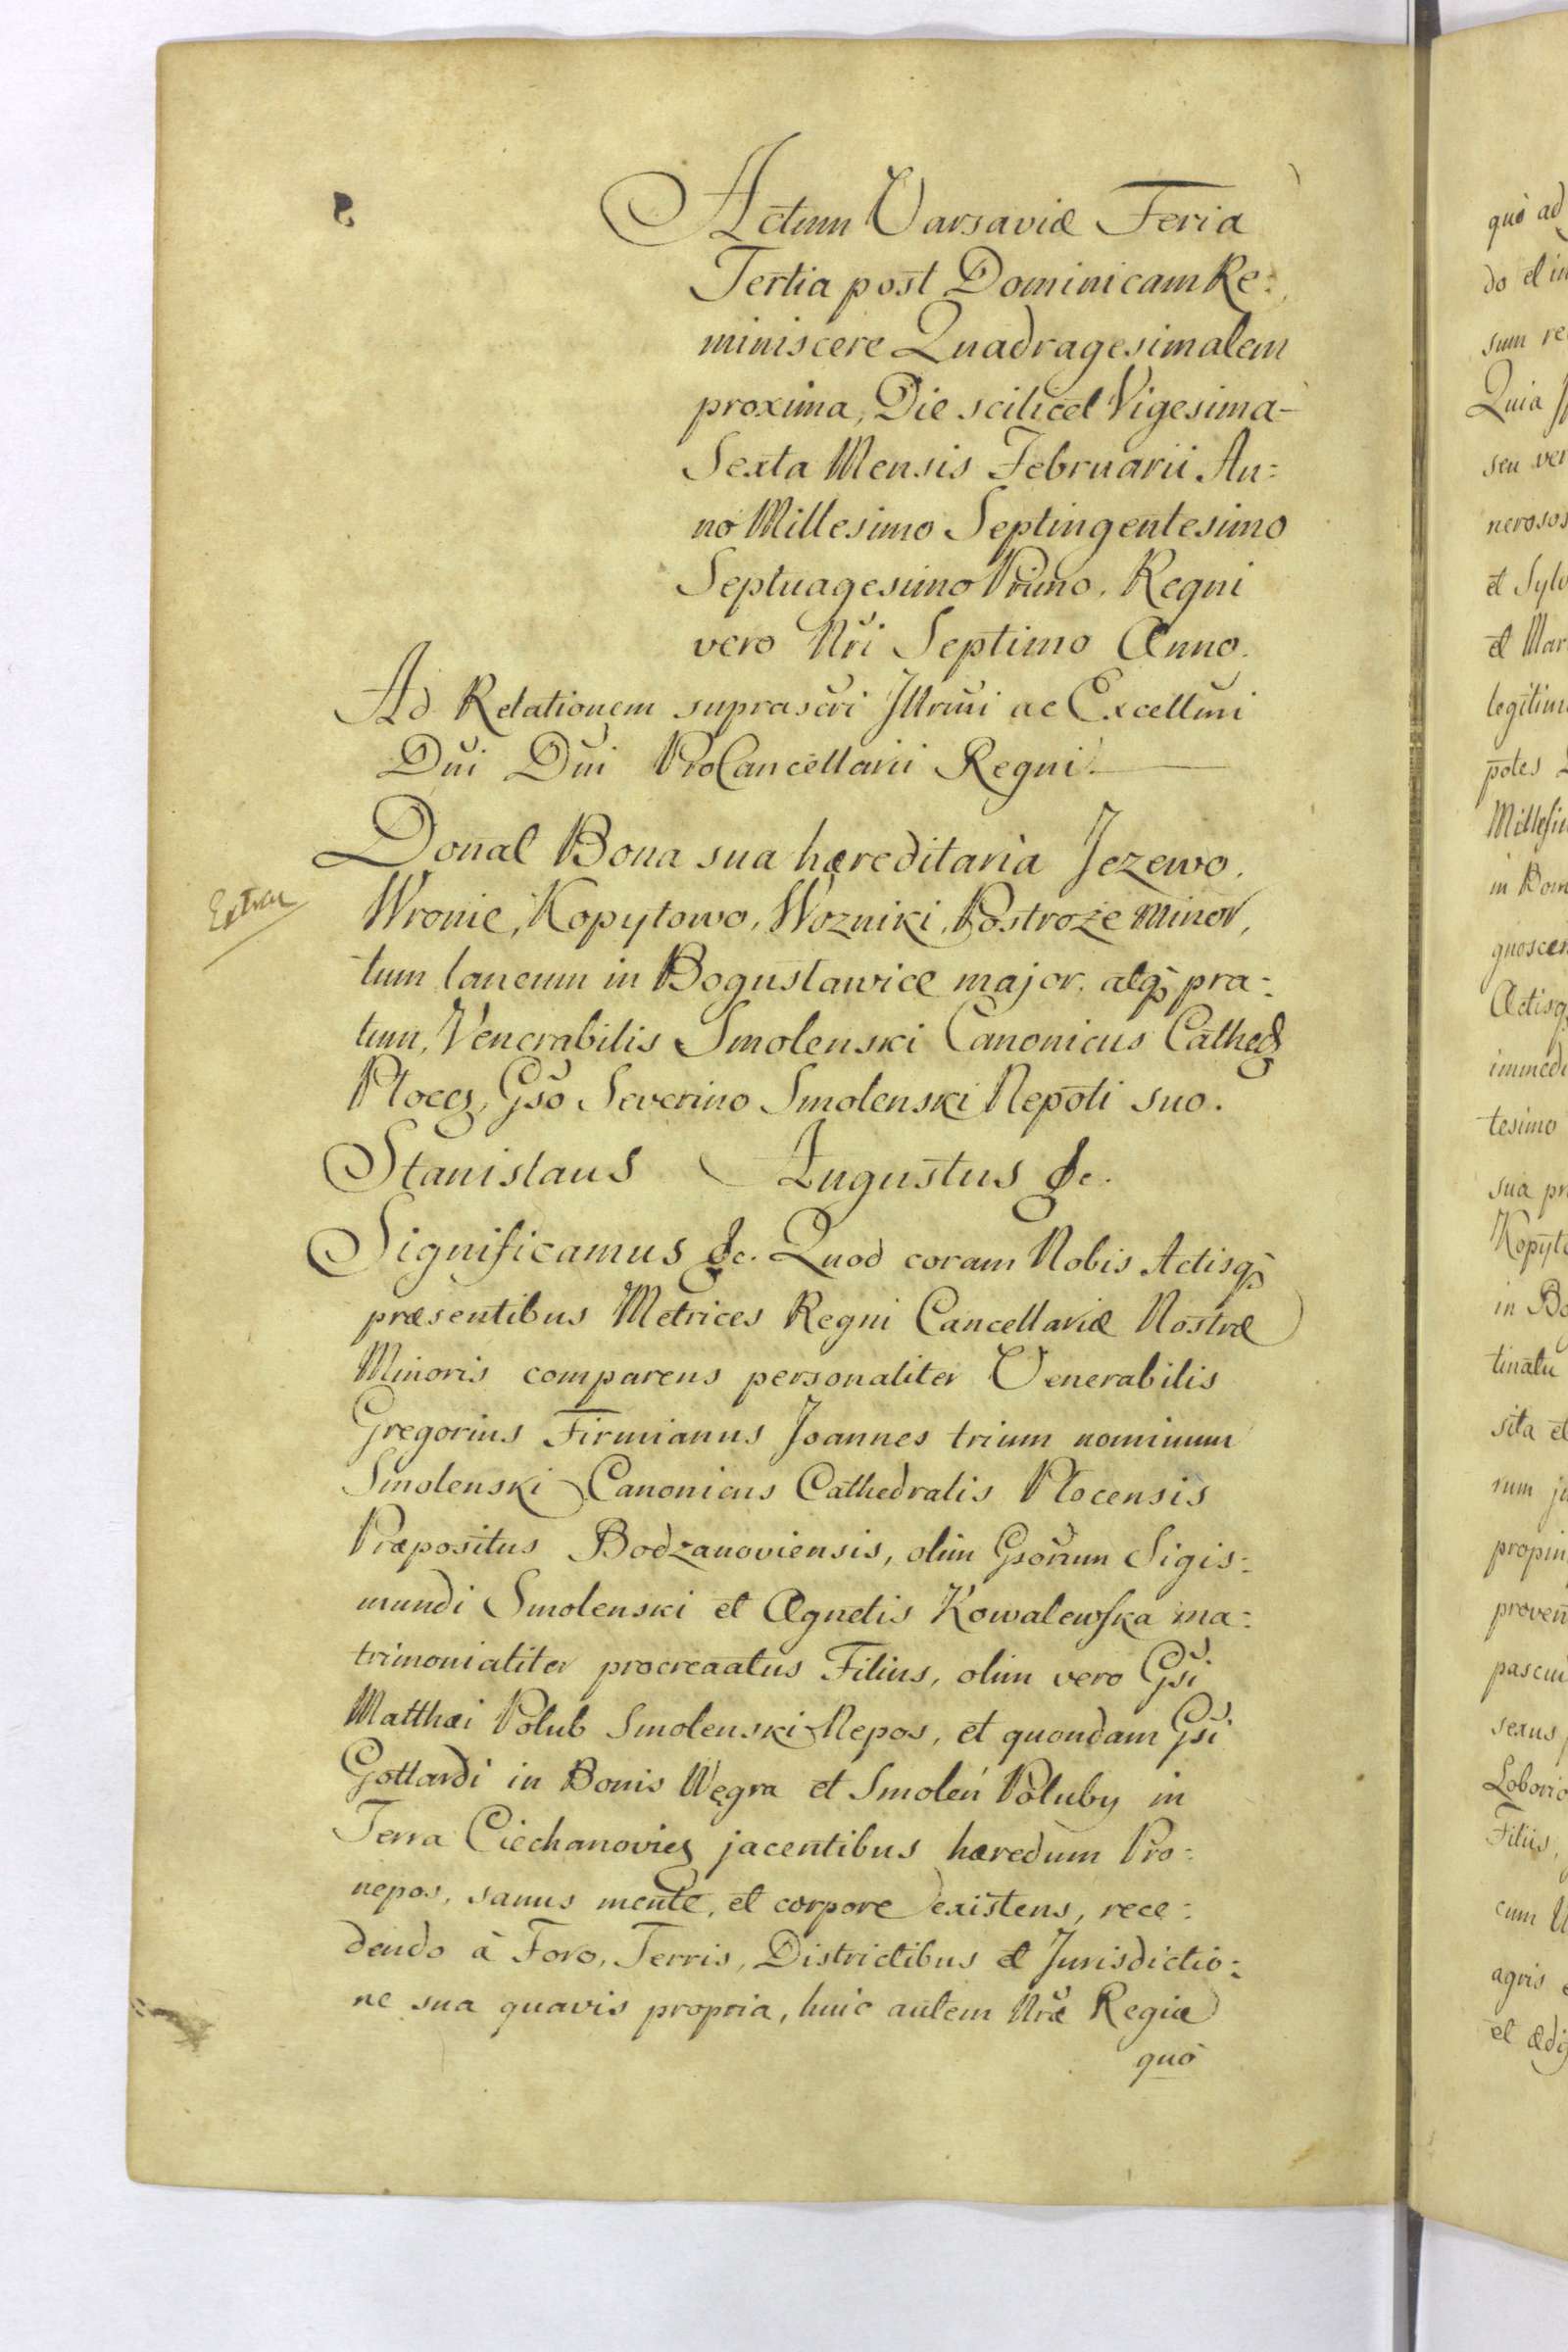 Actum Varsaviæ Feria
Tertia post Dominicam Re=
miniscere Quadragesimalem
proxima, Die scilicet Vigesima-
Sexta Mensis Februarii An=
no Millesimo Septingentesimo
Septuagesimo Primo. Regni
vero Nri Septimo Anno.
Ad Relationem suprascri Illrmi ac Excellmi
Dni Dni ProCancellarii Regni.
Donat Bona sua hæreditaria Jezewo.
Extrac
Wronie, Kopytowo, Wozniki, Rostroże minor,
tum laneum in Bogusławice major, atq, pra=
tum, Venerabilis Smolenski Canonicus Cathed
Ploceń, Gso Severino Smolenski Nepoti suo.
Stanislaus Augustus &c.
Significamus &c. Quod coram Nobis Actisq,
præsentibus Metrices Regni Cancellariæ Nostræ
Minoris comparens personaliter Venerabilis
Gregorius Firmianus Joannes trium nominum
Smolenski Canonicus Cathedralis Plocensis
Præpositus Bodzanoviensis, olim Gsorum Sigis=
mundi Smolenski et Agnetis Kowalewska ma=
trimonialiter procreaatus Filius, olim vero Gsi
Matthæi Polub Smolenski Nepos, et quondam Gsi
Gottardi in Bonis Węgra et Smoleń Poluby in
Terra Ciechanovień jacentibus hæredum Pro=
nepos, sanus mente, et corpore existens, rece=
dendo à Foro, Terris, Districtibus et Jurisdictio=
ne sua quavis propria, huic autem Nræ Regiæ
quò
quò ad
do et in
sum re
Quia
seu ver
nerosos
et Sylv
et Mar
legitim
potes
Millesi
in Bon
gnoscen
Actisq
immedi
tesimo
sua pr
Kopyto
in Bo
tinatu
sita et
rum ju
propin
proven
pascui
sexus
Lobori
Filiis,
cum
agris
et ædi